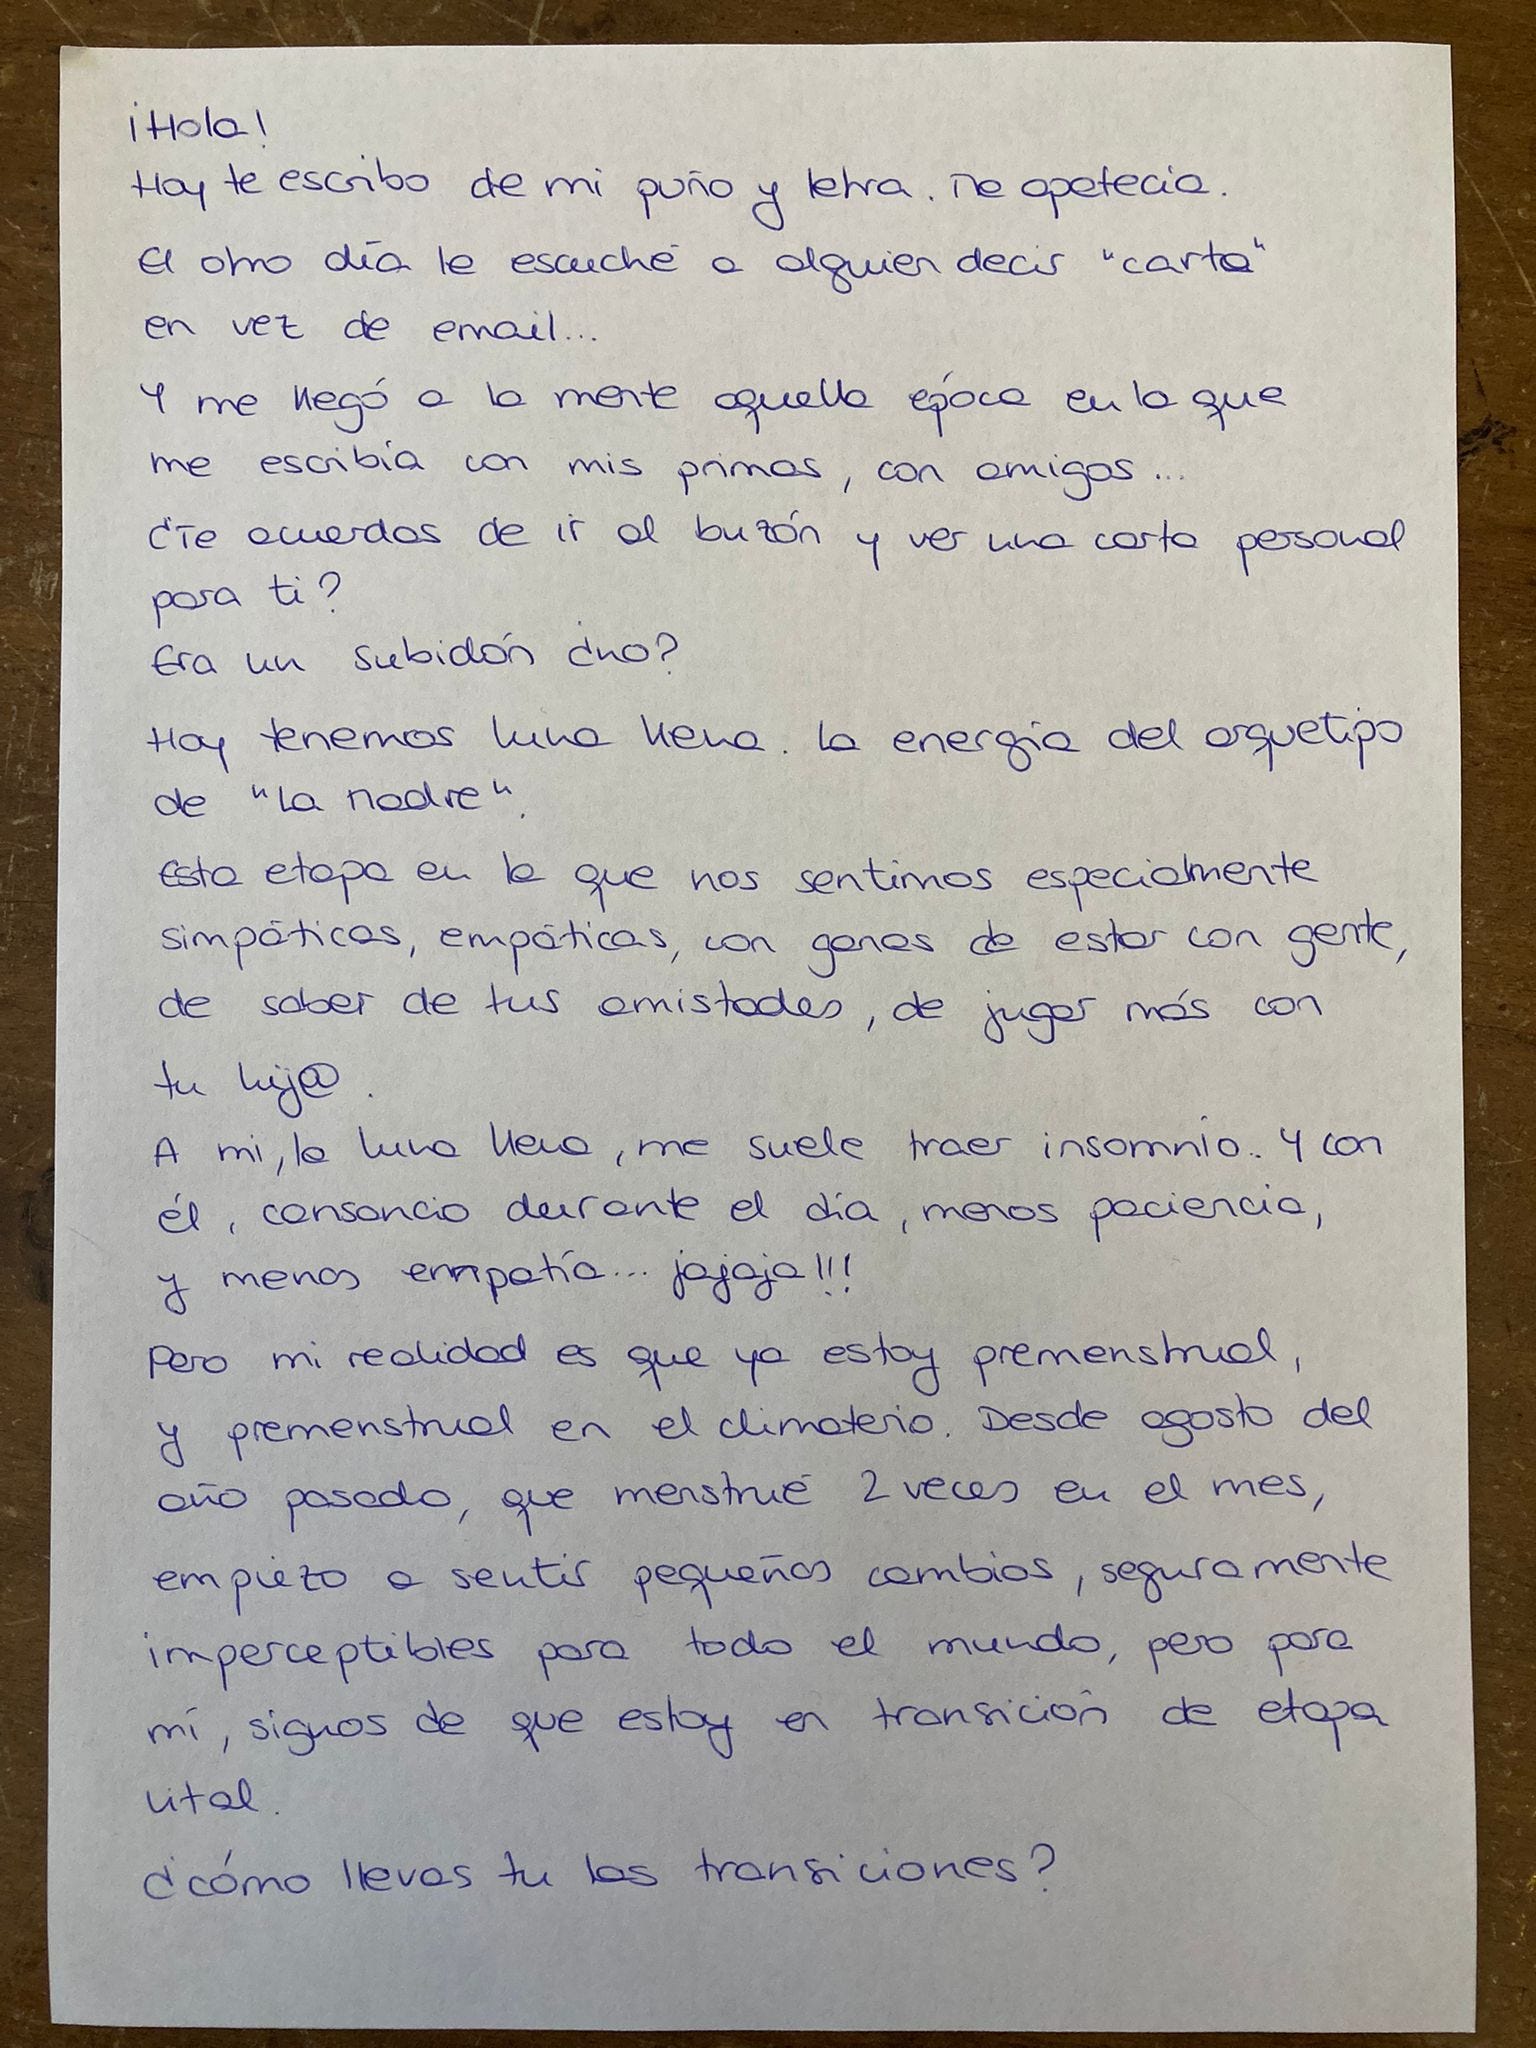 ¡Hola!
Hoy te escribo de mi puño y letra. Me apetecía.
El otro día le escuché a alguien decir "carta"
en vez de email...
Y me llegó a la mente aquella época en la que
me escribía con mis primas, con amigos...
¿Te acuerdas de ir al buzón y ver una carta personal
para ti?
Era un subidón ¿no?
Hoy tenemos luna llena. La energía del arquetipo
de "La Madre".
Esta etapa en la que nos sentimos especialmente
simpáticas, empáticas, con ganas de estar con gente,
de saber de tus amistades, de jugar más con
tu hij@.
A mi, la luna llena, me suele traer insomnio.. Y con
él, cansancio durante el día, menos paciencia,
y menos empatía... jajaja!!!
Pero mi realidad es que ya estoy premenstrual,
y premenstrual en el climaterio. Desde agosto del
año pasado, que menstrué 2 veces en el mes,
empiezo a sentir pequeños cambios, seguramente
imperceptibles para todo el mundo, pero para
mí, signos de que estoy en transición de etapa
vital.
¿cómo llevas tu las transiciones?